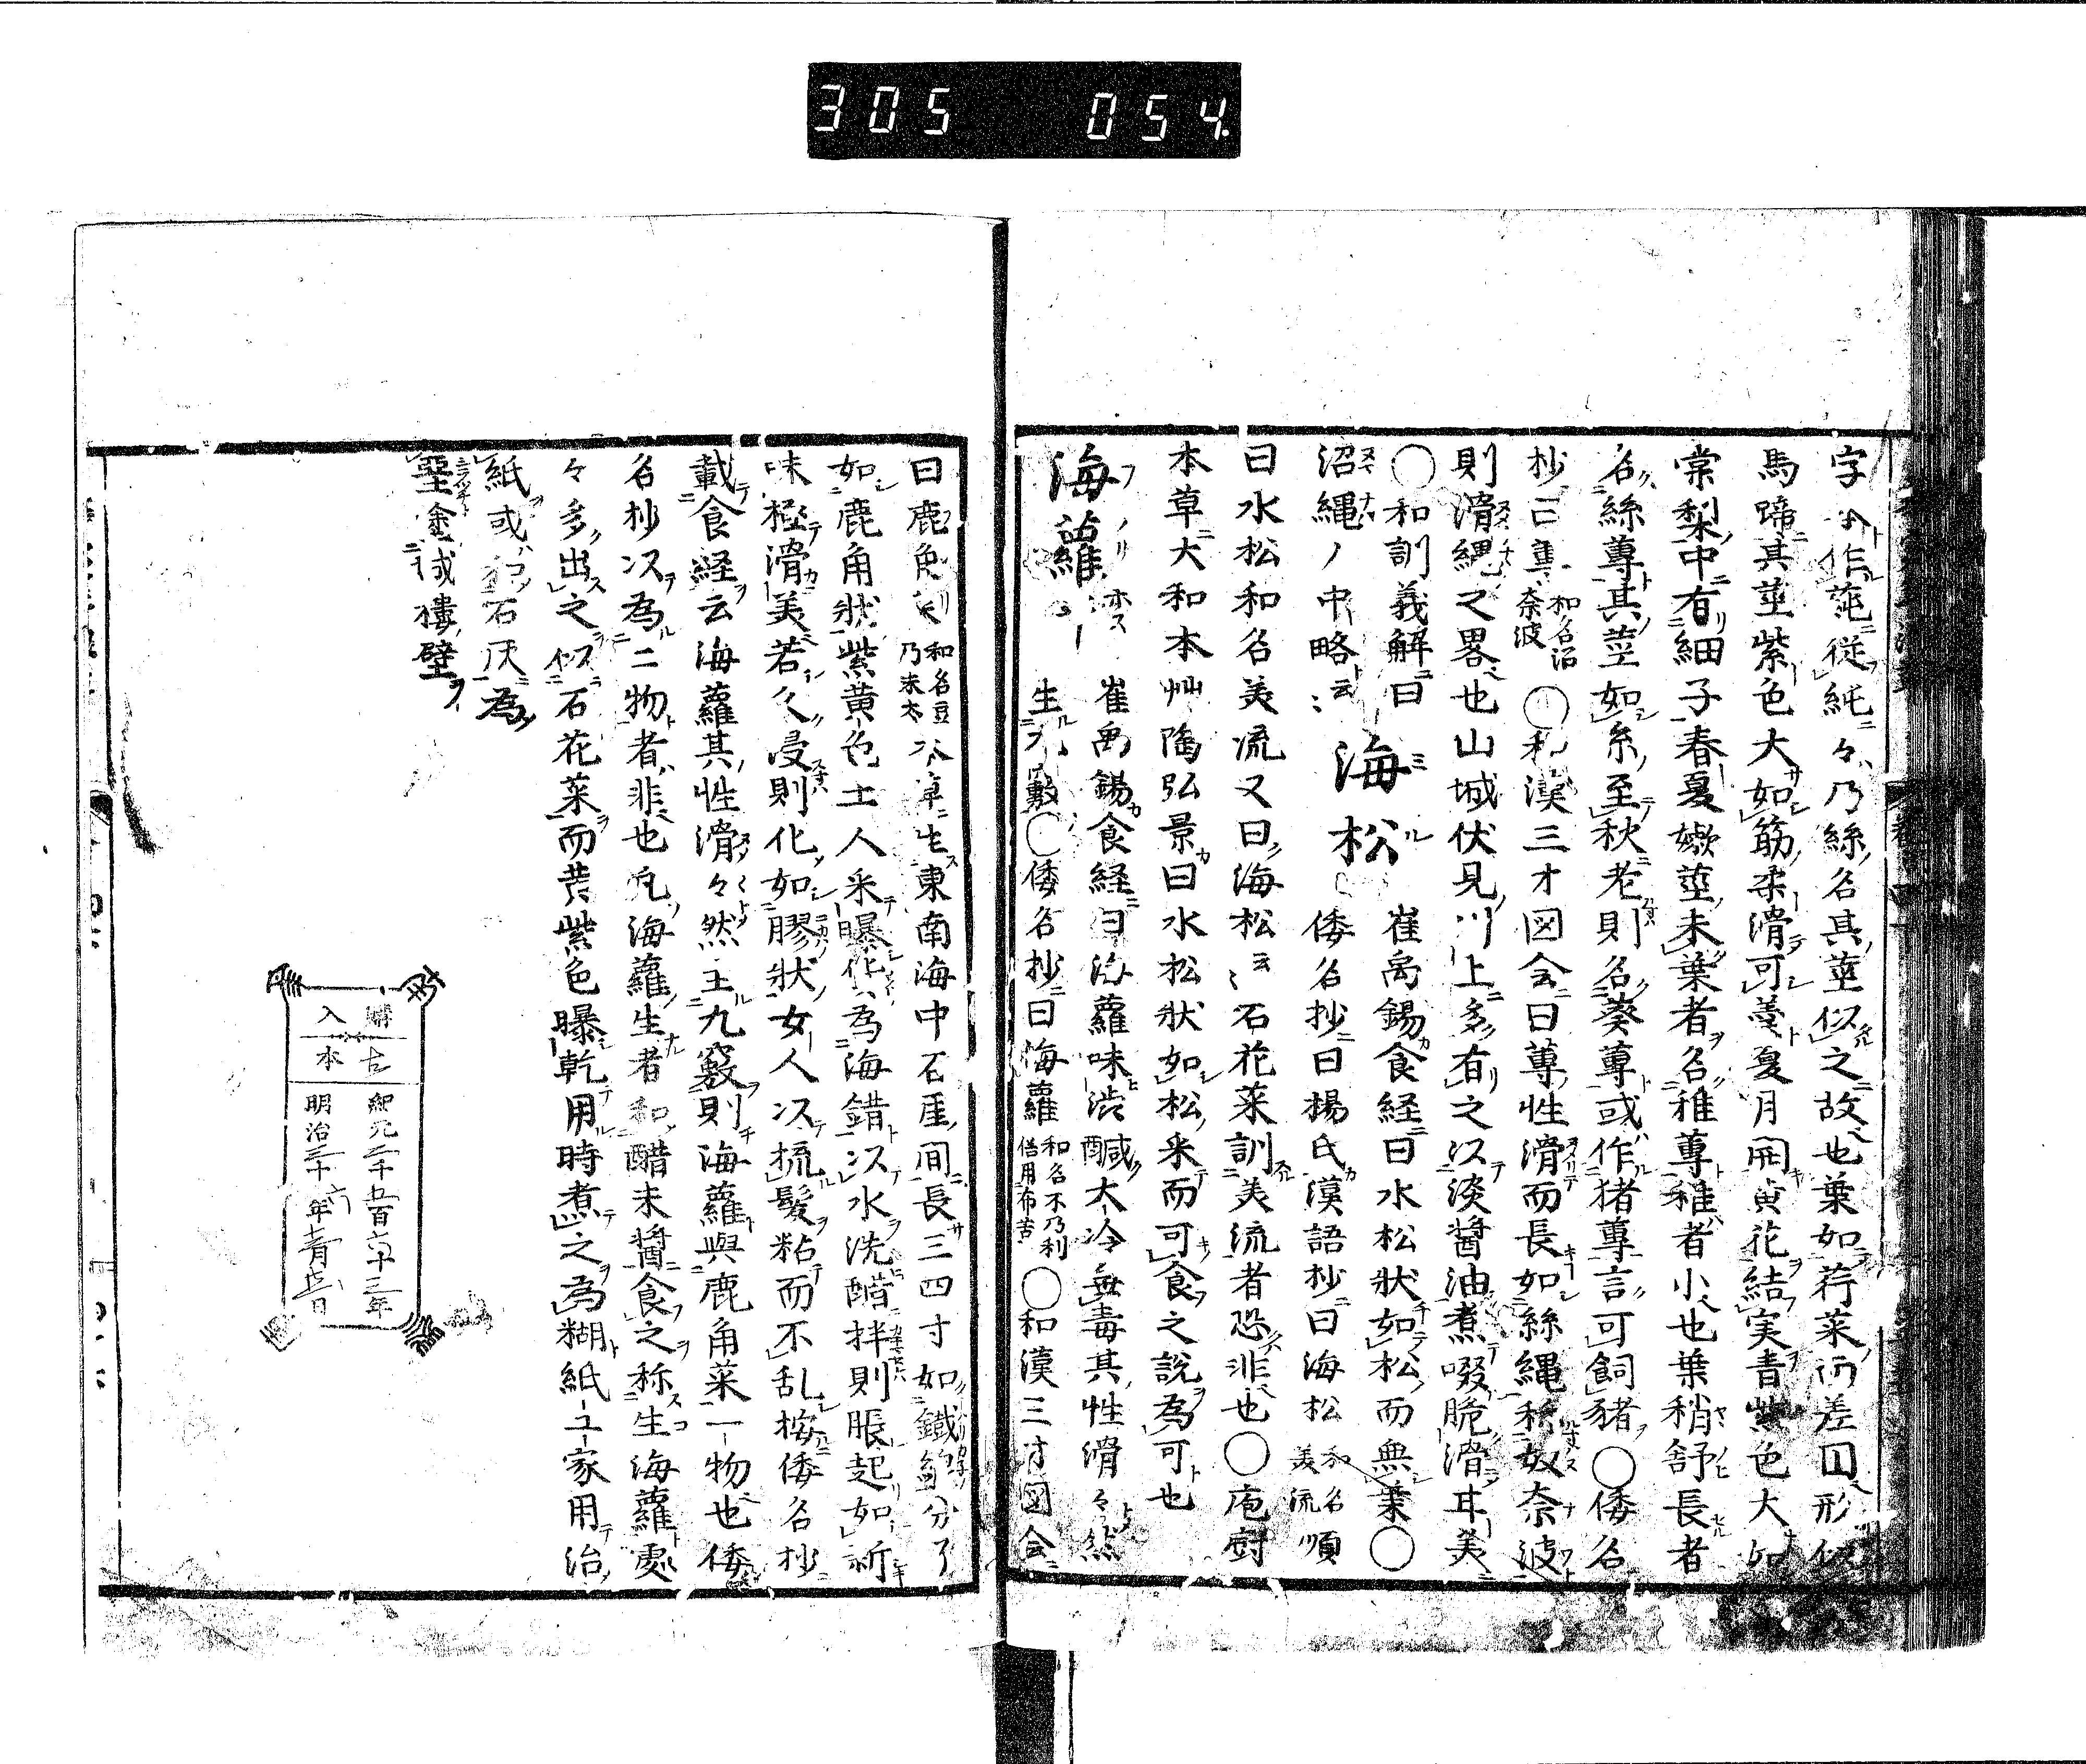 305 054
字今作蓴従純々乃絲名其茎似之故也葉如荇菜而差円形似
馬蹄其茎紫色大如筯柔滑可羹夏月開黄花結実青紫色大如
棠梨中有細子春夏嫩茎未葉者名稚蓴稚者小也葉稍舒長者
名絲蓴其茎如糸至秋老則名葵蓴或作猪蓴言可飼猪〇倭名
抄曰蓴和名沼奈波〇和漢三才図会曰蓴性滑而長如絲縄称奴奈波
則滑縄之畧也山城伏見川上多有之以淡醤油煮啜脆滑甘美
〇和訓義解曰沼縄ノ中略ト云
海松 崔禹錫食経曰水松状如松而無葉〇
倭名抄曰楊氏漢語抄曰海松和名美流順
曰水松和名美流又曰海松云石花菜訓美流者恐非也〇庖厨
本草大和本艸陶弘景曰水松状如松采而可食之説為可也
海蘿 崔禹錫食経曰海蘿味渋鹹大冷無毒其性滑々然
生〇倭名抄曰海蘿和名不乃利借用布苔〇和漢三才図会
曰鹿角菜和名豆乃末太生東南海中石厓間長三四寸如鐵線分了
如鹿角状紫黄色土人采曝貨為海錯以水洗醋拌則脹起如新
味極滑美若久浸則化如膠状女人以梳髪粘而不乱按倭名抄
載食経云海蘿其性滑々然主九竅則海蘿與鹿角菜一物也倭
名抄以為二物者非也凡海蘿生者和醋未醤食之称生海蘿處
々多出之似石花菜而黄紫色曝乾用時煮之為糊紙工家用治
紙或和石灰為
堊塗城樓壁
購入
古本
紀元二千五百六十三年
明治三十六年